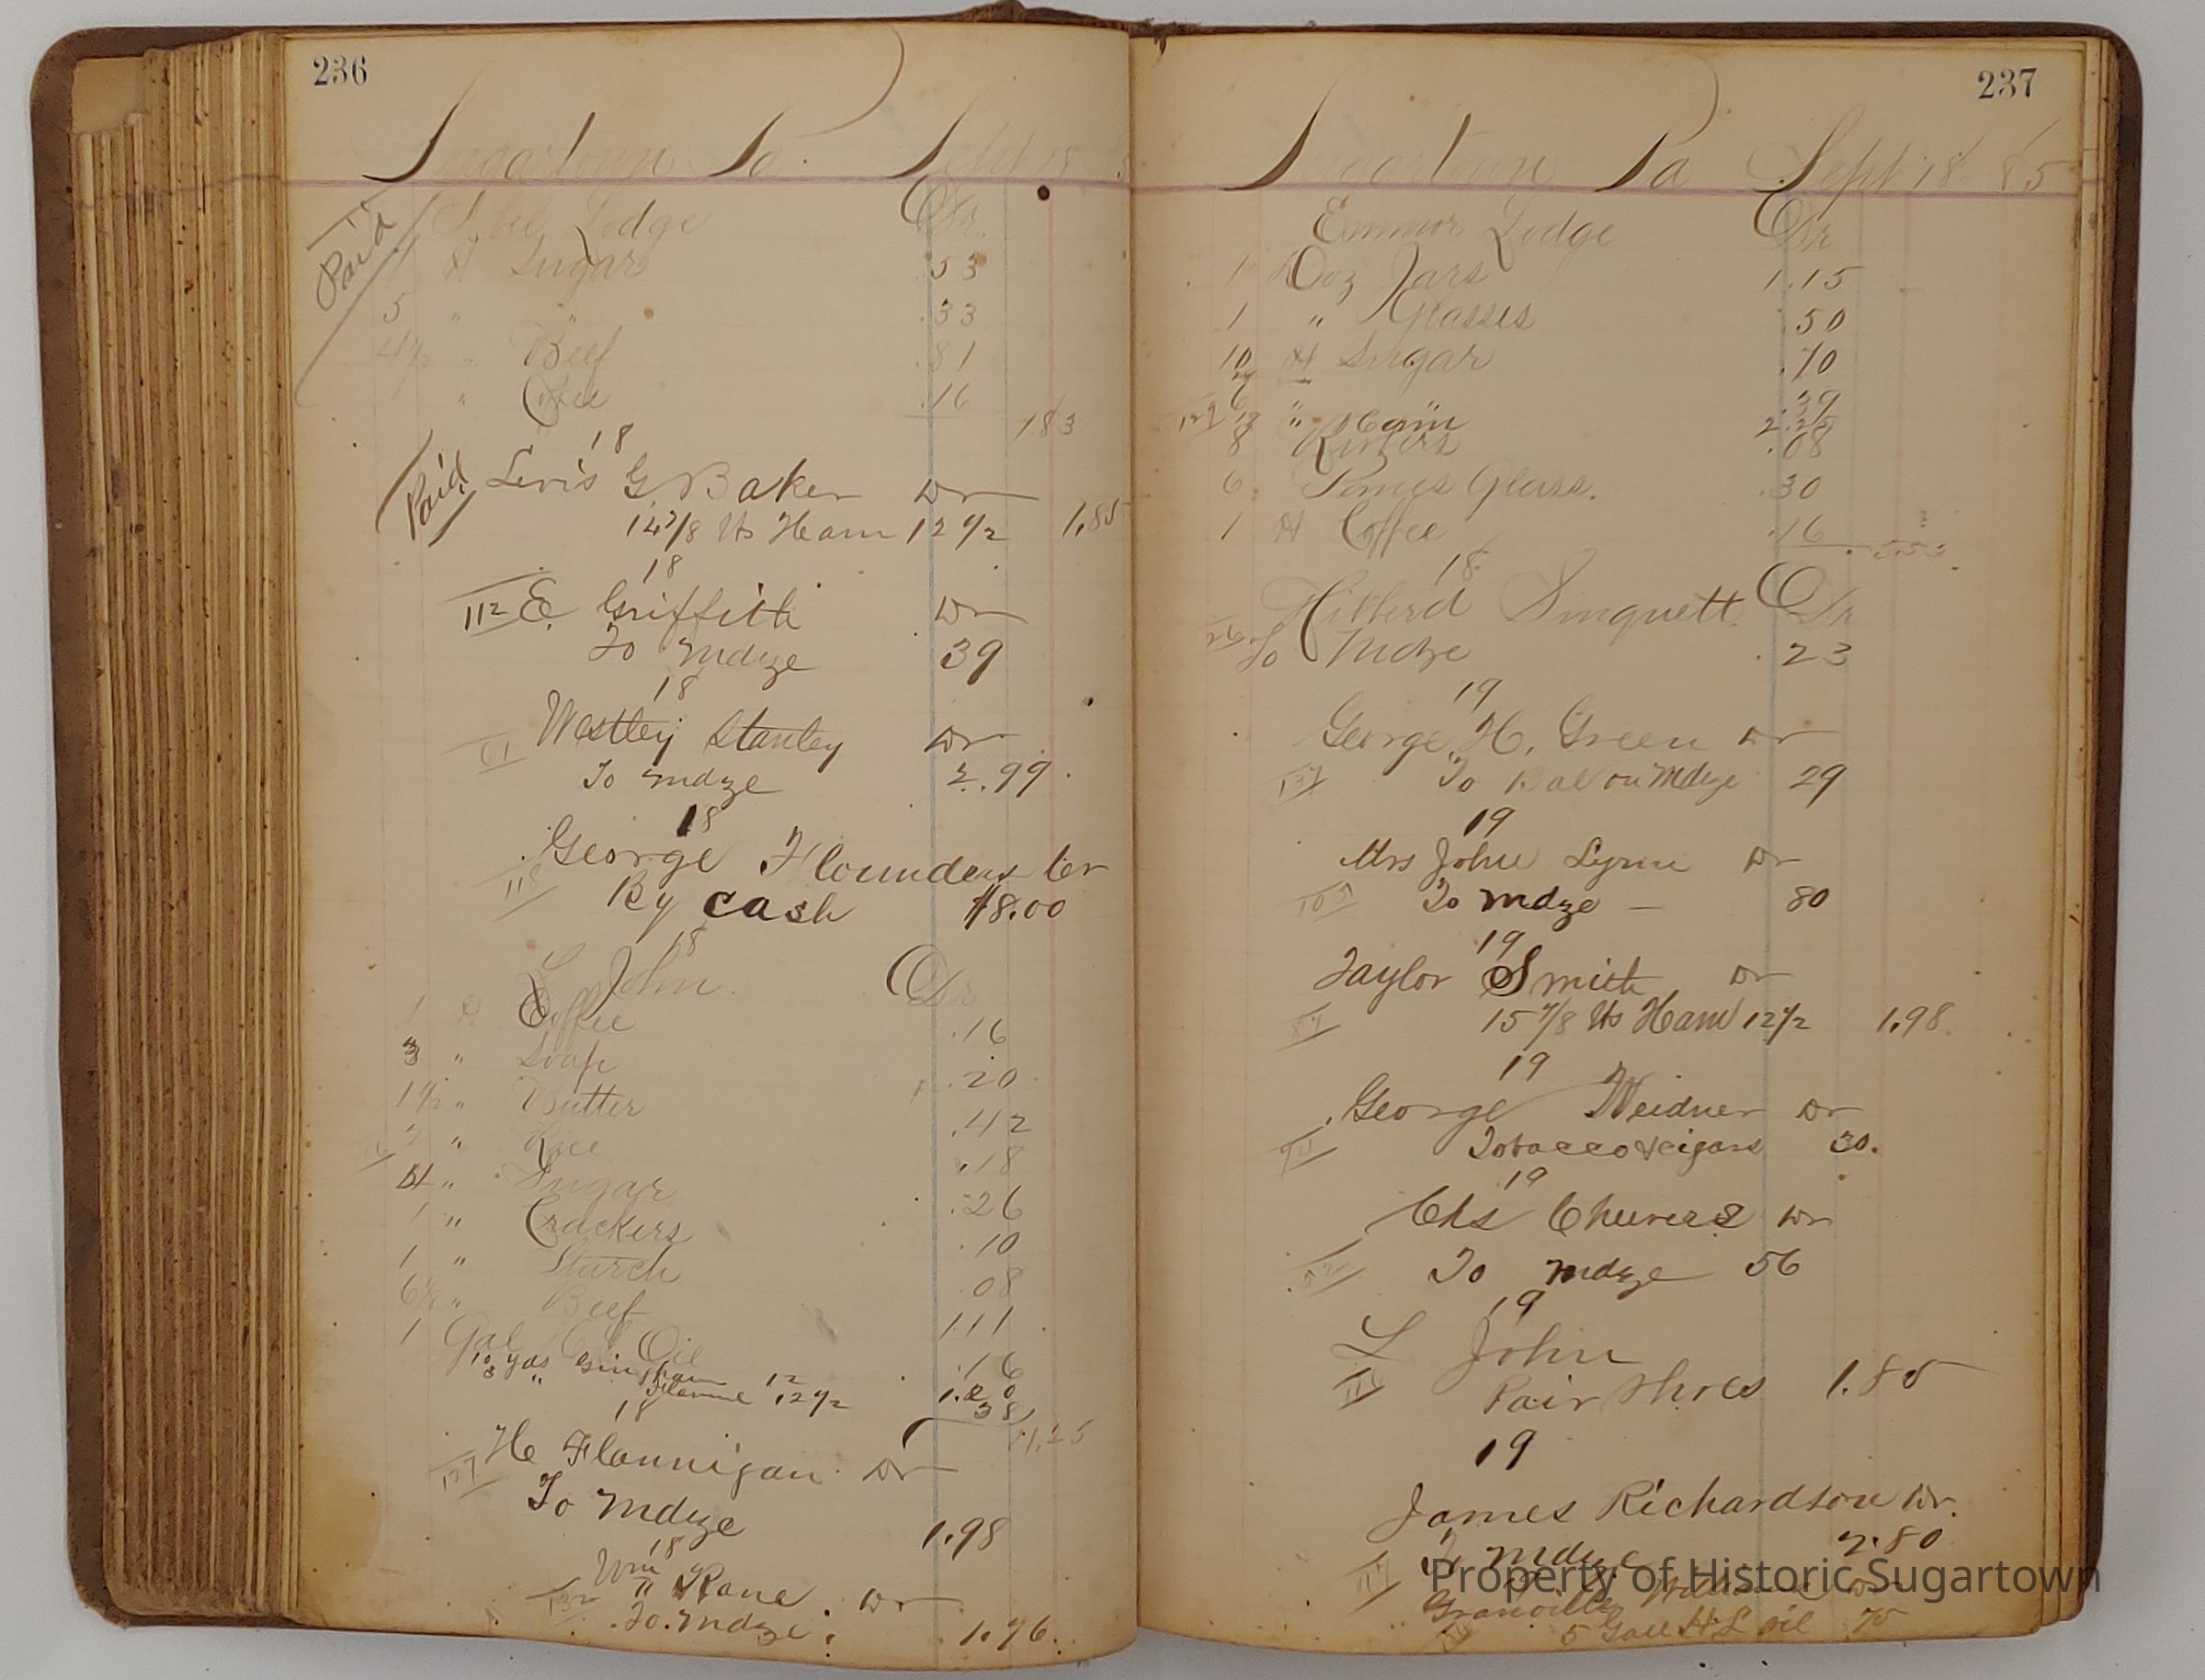 236
Sugartown Pa. Sept 18
Paid
Lodge Dr.
# Sugar .53
5 " " .33
4 1/2 " Beef .81
1 " Coffee .16
1.83
18
Paid Levis G Baker Dr
14 7/8 lbs Ham 12 1/2 1.85
18
112 E. Griffith Dr
To Mdze 39
18
61 Westley Stanley Dr
To Mdze 2.99
18
118 George Flounders Cr
By Cash $8.00
18
L John. Dr
1 # Coffee .16
3 " Soap .20
1 1/2 " Butter .42
2 " Rice .18
" Sugar .26
1 " Crackers .10
1 " Starch .08
" Beef 1.11
1 Gal Oil .16
10 yds Gingham 12 1.20
3 " Flannel 12 1/2 38
18
127 H Flannigan Dr
To Mdze 1.98
18
132 Wm H Kane Dr
To Mdze. 1.96
237
Sugartown Pa Sept 18 85
Emmor Lodge Dr
1 Doz Jars 1.15
1 " Glasses 50
10 # Sugar .70
6 " " .39
" Ham
8 .08
6 Panes Glass. .30
1 # Coffee .16
18
Singuett Dr
26 To Mdze .23
19
George H. Green Dr
137 To Bal on Mdze 29
19
Mrs John Lynn Dr
105 To Mdze — 80
19
Taylor Smith Dr
15 7/8 lbs Ham 12 1/2 1.98
19
George Weidner Dr
Tobacco & cigars 30.
19
Chs Cheevers Dr
To Mdze 56
19
L John
116 Pair Shoes 1.85
19
James Richardson Dr.
To Mdze 2.80
Granville Williams Dr
5 Gall H L oil 75
Property of Historic Sugartown